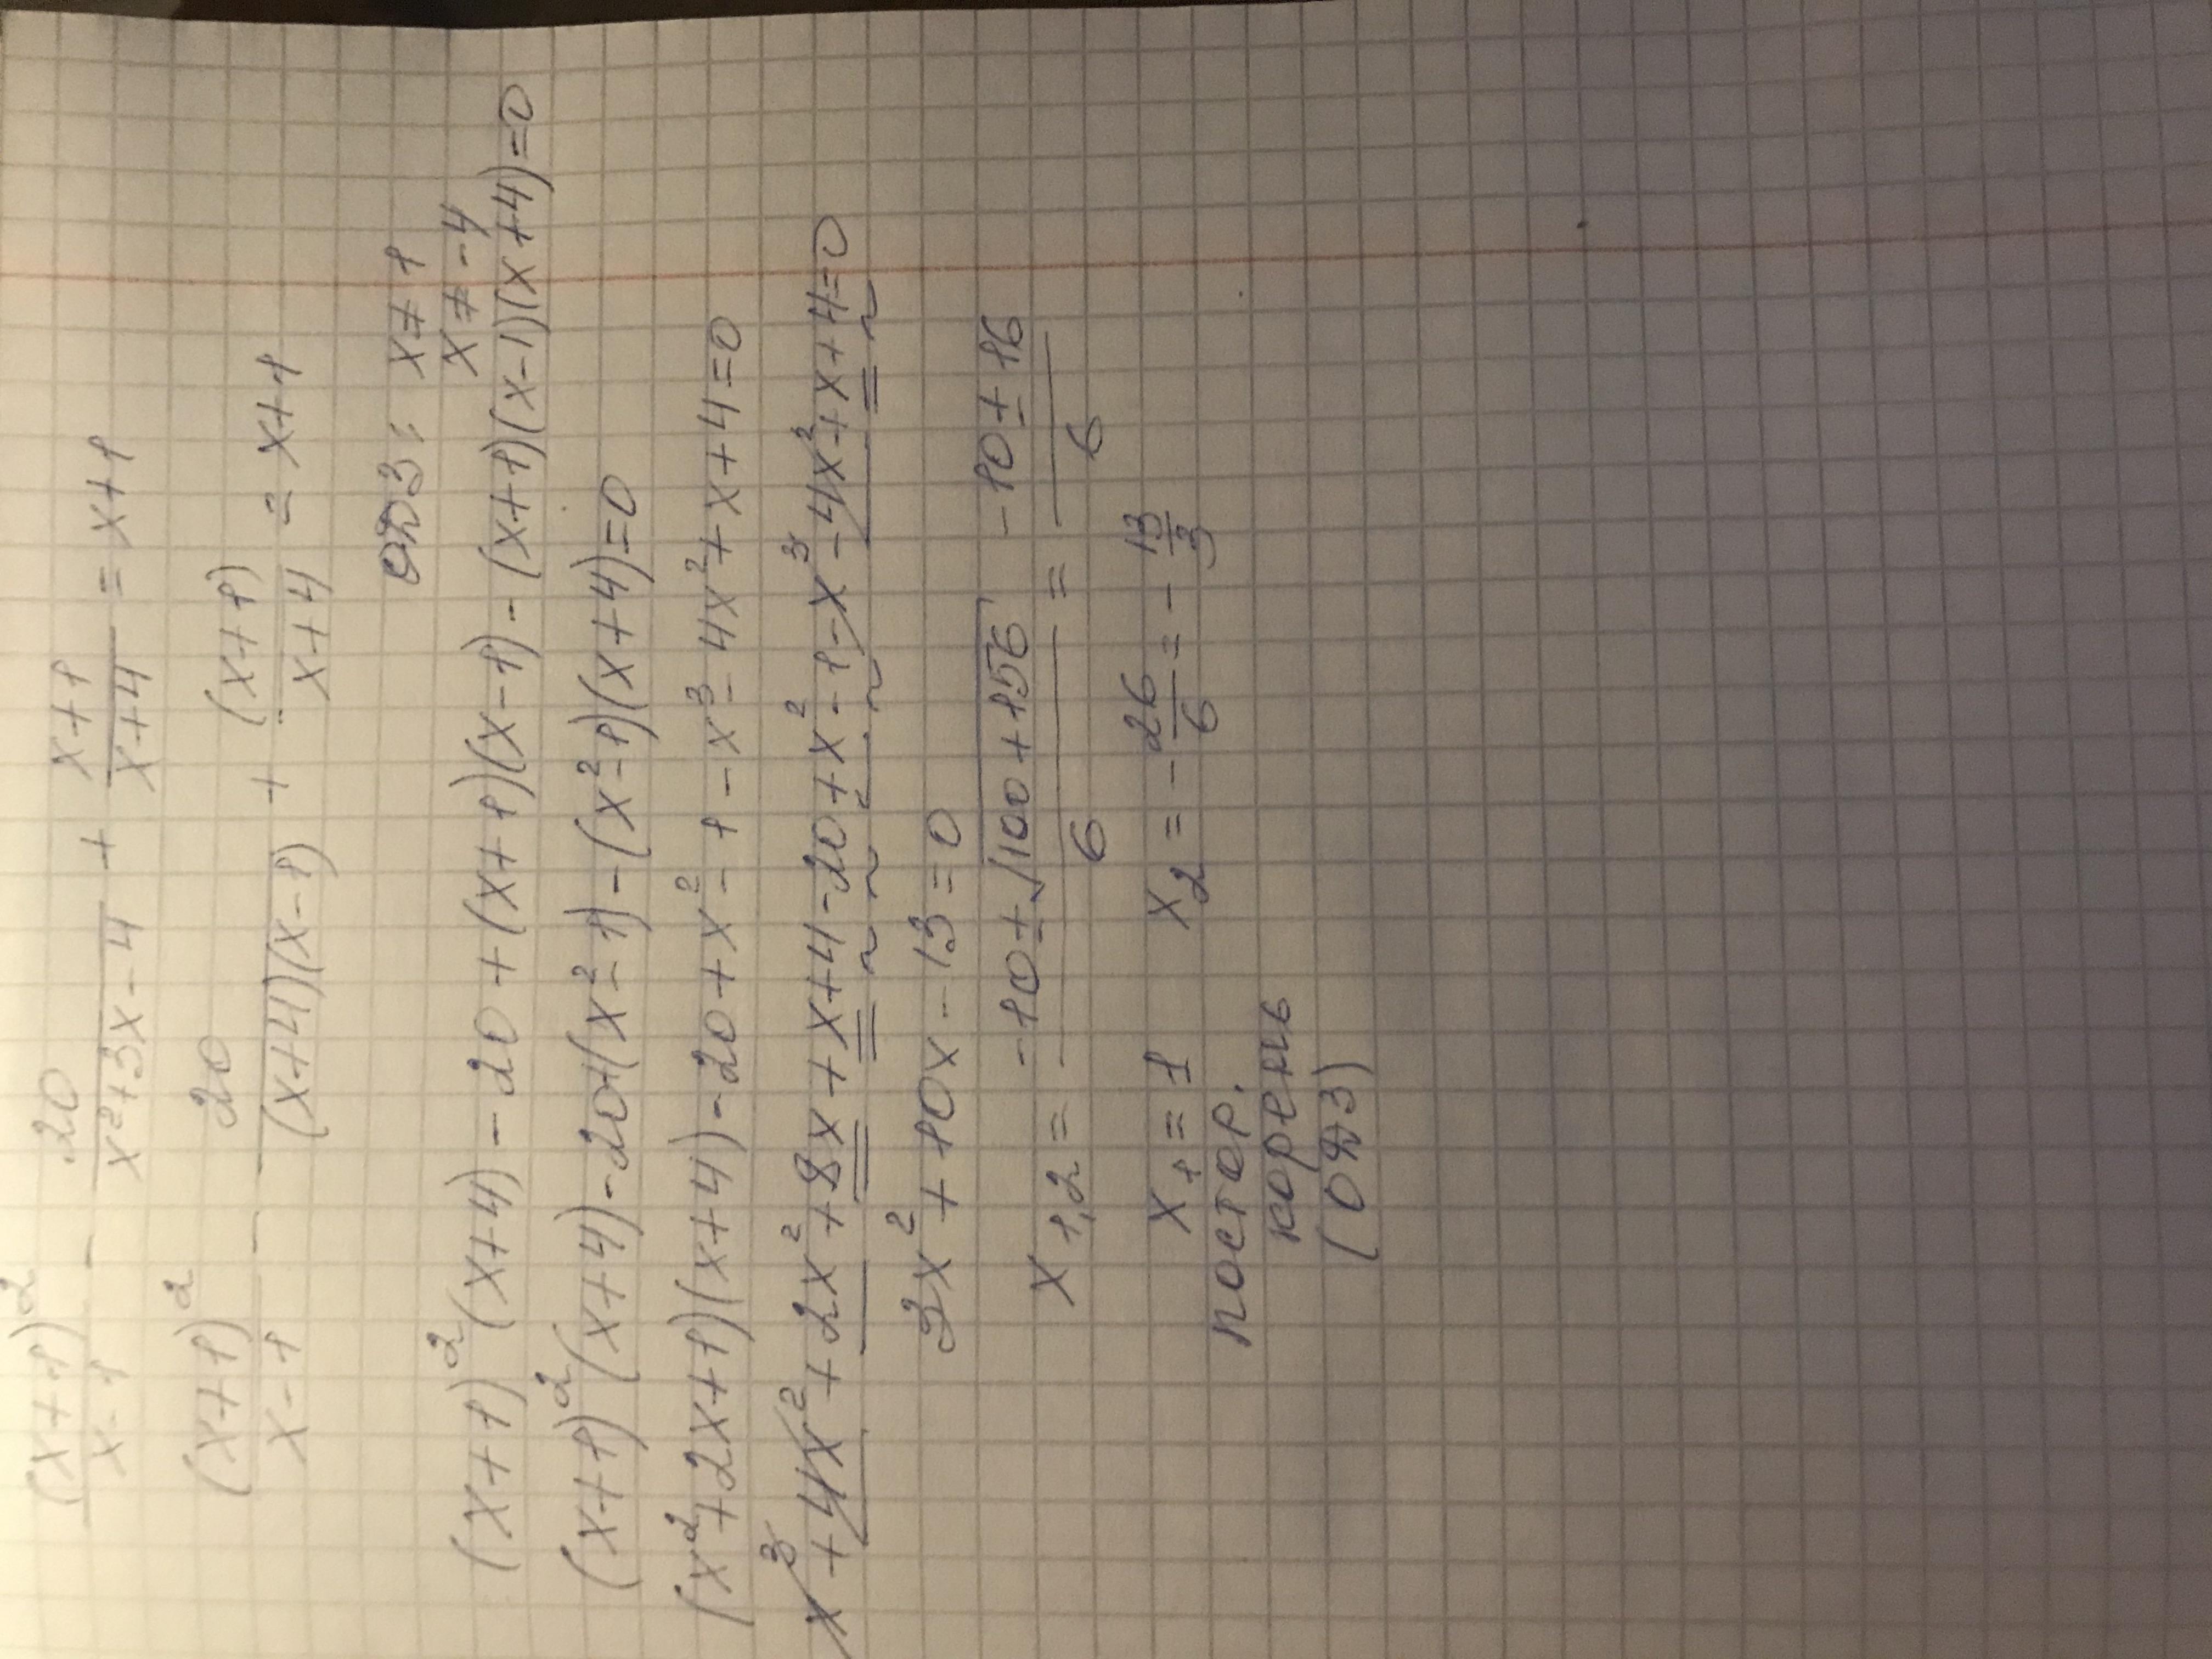 (x+1)²/(x-1) - 20/(x²+3x-4) + (x+1)/(x+4) = x+1
(x+1)²/(x-1) - 20/((x+4)(x-1)) + (x+1)/(x+4) = x+1
ОДЗ: x≠1
x≠-4
(x+1)²(x+4)-20+(x+1)(x-1)-(x+1)(x-1)(x+4)=0
(x+1)²(x+4)-20+(x²-1)-(x²-1)(x+4)=0
(x²+2x+1)(x+4)-20+x²-1-x³-4x²+x+4=0
x³+4x²+2x²+8x+x+4-20+x²-1-x³-4x²+x+4=0
3x²+10x-13=0
x1,2 = (-10±√(100+156))/6 = (-10±16)/6
x1=1 x2=-26/6=-13/3
постор.
корень
(ОДЗ)